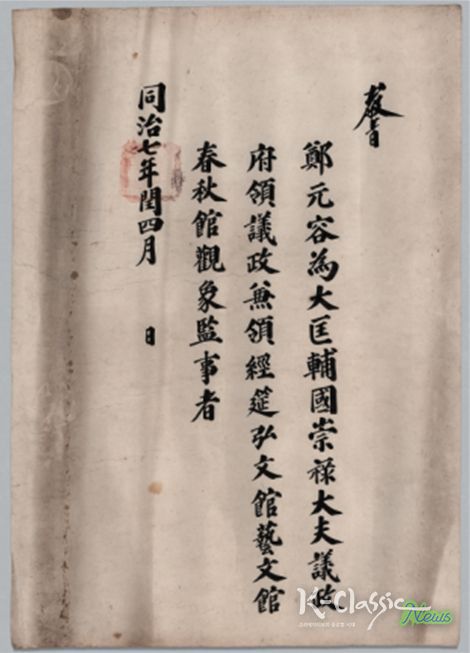 敎旨
鄭元容爲大匡輔國崇祿大夫議政
府領議政兼領經筵弘文館藝文館
春秋館觀象監事者
同治七年閏四月 日
K-Classic
News